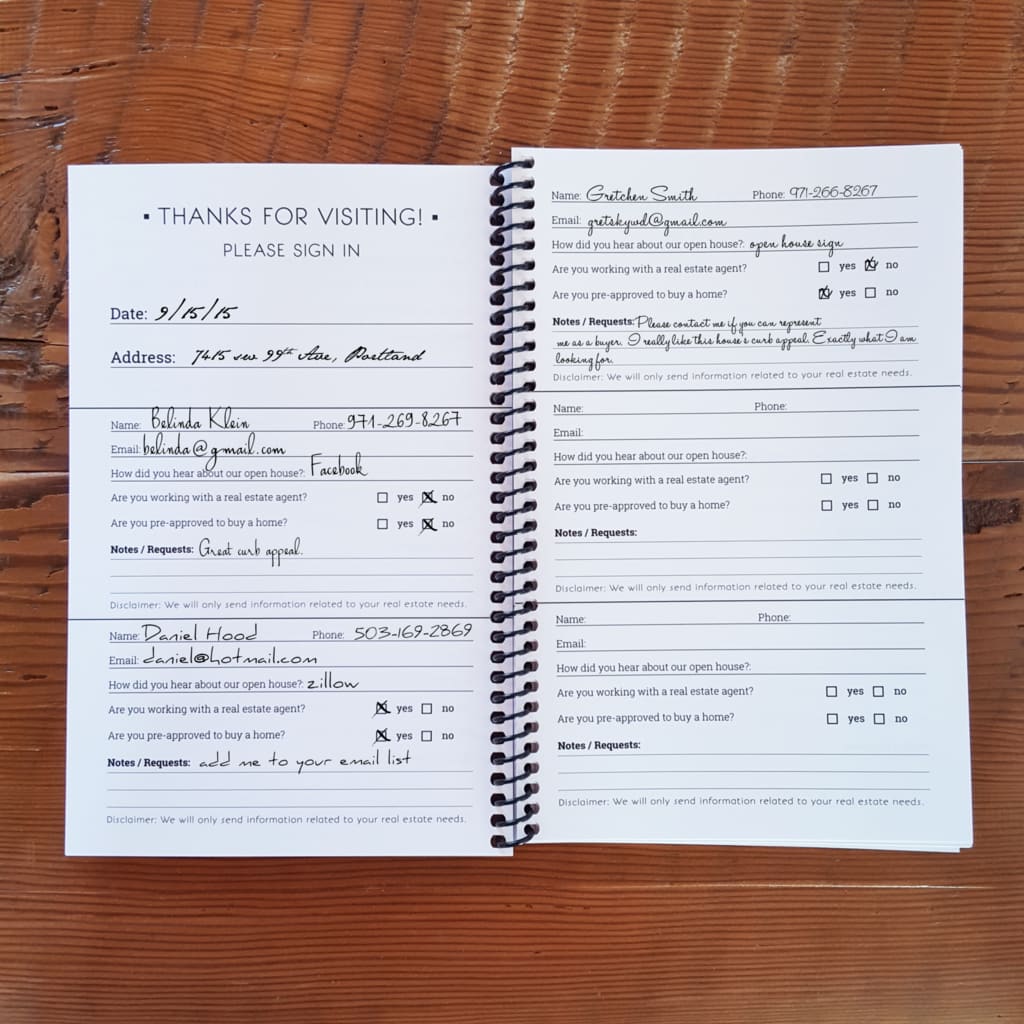 ▪ THANKS FOR VISITING! ▪
PLEASE SIGN IN
Date: 9/15/15
Address: 7415 sw 99th Ave, Portland
Name: Belinda Klein Phone: 971-269-8267
Email: belinda@gmail.com
How did you hear about our open house?: Facebook
Are you working with a real estate agent? ☐ yes ☒ no
Are you pre-approved to buy a home? ☐ yes ☒ no
Notes / Requests: Great curb appeal.
Disclaimer: We will only send information related to your real estate needs.
Name: Daniel Hood Phone: 503-169-2869
Email: daniel@hotmail.com
How did you hear about our open house?: zillow
Are you working with a real estate agent? ☒ yes ☐ no
Are you pre-approved to buy a home? ☒ yes ☐ no
Notes / Requests: add me to your email list
Disclaimer: We will only send information related to your real estate needs.
Name: Gretchen Smith Phone: 971-266-8267
Email: gretskywd@gmail.com
How did you hear about our open house?: open house sign
Are you working with a real estate agent? ☐ yes ☒ no
Are you pre-approved to buy a home? ☒ yes ☐ no
Notes / Requests: Please contact me if you can represent
me as a buyer. I really like this house's curb appeal. Exactly what I am
looking for.
Disclaimer: We will only send information related to your real estate needs.
Name: Phone:
Email:
How did you hear about our open house?:
Are you working with a real estate agent? ☐ yes ☐ no
Are you pre-approved to buy a home? ☐ yes ☐ no
Notes / Requests:
Disclaimer: We will only send information related to your real estate needs.
Name: Phone:
Email:
How did you hear about our open house?:
Are you working with a real estate agent? ☐ yes ☐ no
Are you pre-approved to buy a home? ☐ yes ☐ no
Notes / Requests:
Disclaimer: We will only send information related to your real estate needs.